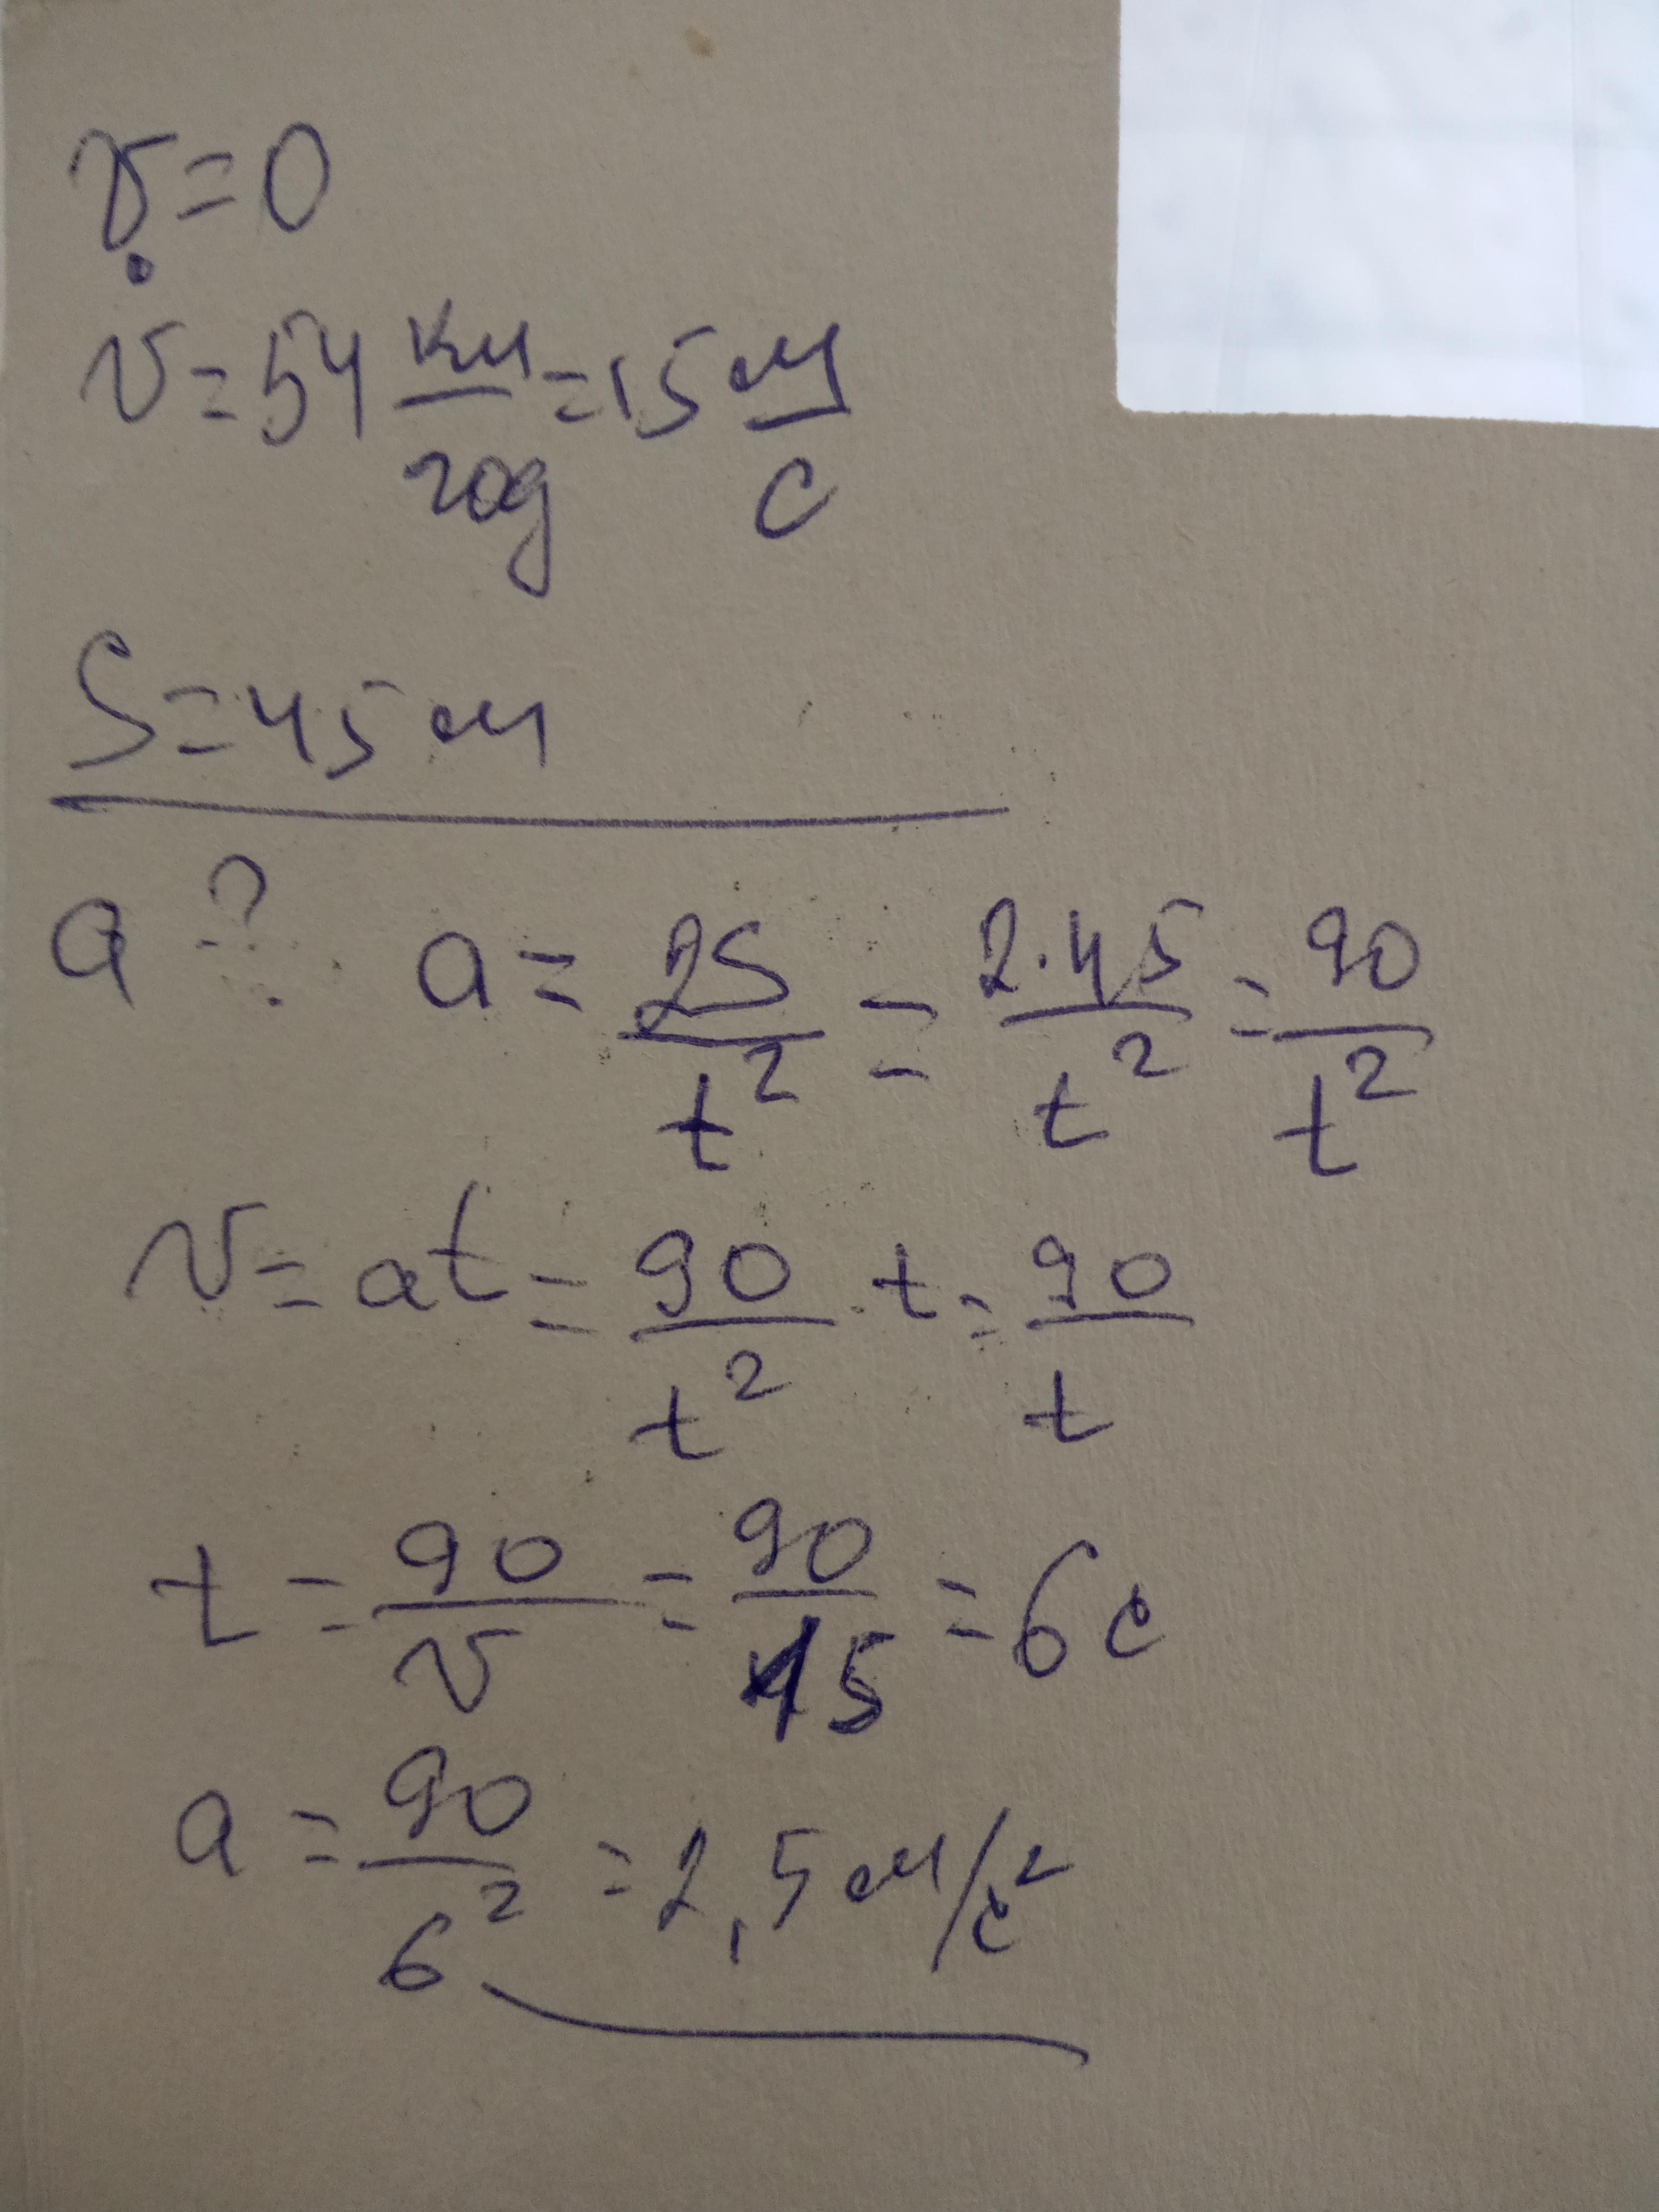 v₀=0
v=54 км/год=15 м/с
S=45м
a-? a=2S/t²=2·45/t²=90/t²
v=at=90/t²·t=90/t
t=90/v=90/15=6c
a=90/6²=2,5м/c²